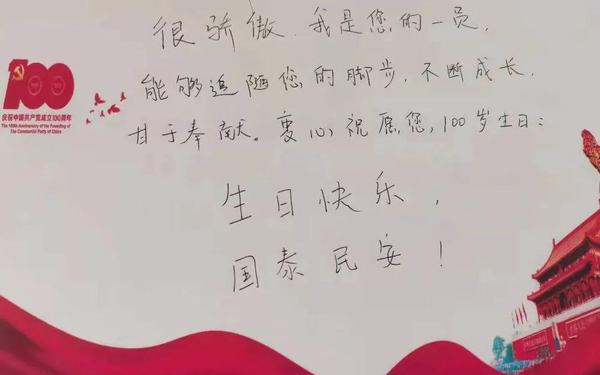 很骄傲,我是您的一员,
能够追随您的脚步,不断成长,
甘于奉献。衷心祝愿您,100岁生日:
生日快乐,
国泰民安!
100
庆祝中国共产党成立100周年
The 100th Anniversary of the Founding of
The Communist Party of China